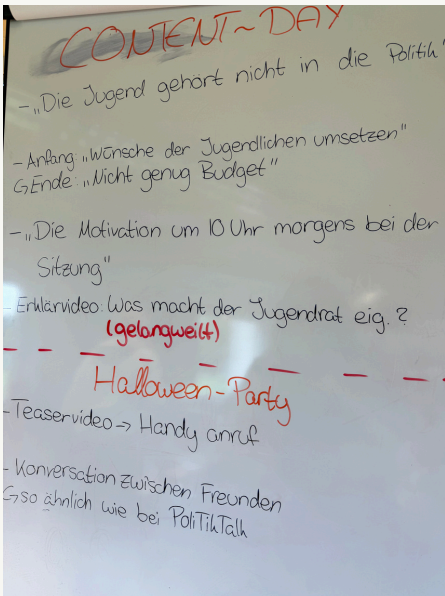 CONTENT~DAY
- „Die Jugend gehört nicht in die Politik"
- Anfang: „Wünsche der Jugendlichen umsetzen"
↳ Ende: „Nicht genug Budget"
- „Die Motivation um 10 Uhr morgens bei der
Sitzung"
- Erklärvideo: Was macht der Jugendrat eig.?
(gelangweilt)
Halloween-Party
- Teaservideo → Handy anruf
- Konversation zwischen Freunden
↳ so ähnlich wie bei PoliTikTalk